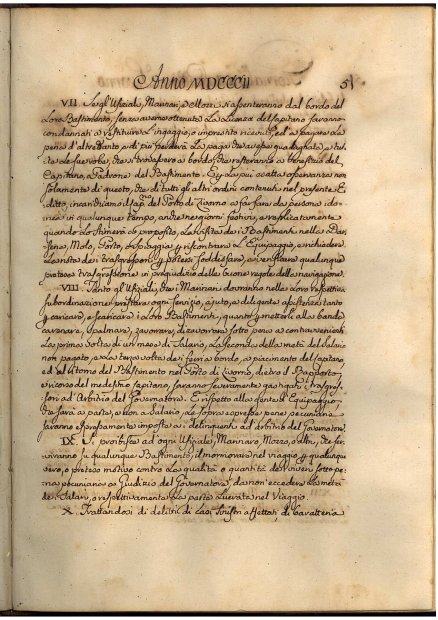 Anno MDCCCII 51
VII. Se gl'Ufiziali, Marinari, e Mozzi si assenteranno dal bordo del
Loro Bastimento, senza averne ottenuta La Licenza del Capitano saranno
condannati a restituire L'ingaggio, o imprestito ricevuto, ed a pagare La
pena d'altrettanto, e di più perderà La paga che avesse guadagnata, e tut-
te Le sue robe, che si trovassero a bordo, che resteranno a benefizio del
Capitano, e Padrone del Bastimento. E per La più esatta osservanza non
solamente di questo, che di tutti gli altri ordini contenuti nel presente E-
ditto, incarichiamo il Cap. del Porto di Livorno a far fare da persona ido-
nea in qualunque tempo, anche nei giorni festivi, e replicatamente
quando Lo stimerà a proposito, La visita dei Bastimenti nella Dar-
sena, Molo, Porto, o Spiaggia, e riscontrare L'Equipaggio, e richiedere
La nota dei trasgressori, per potersi soddisfare, e verificare qualunque
pratica e trasgressione in pregiudizio delle buone regole della navigazione.
VIII. Tanto gl'Ufiziali, che i Marinari dovranno nella Loro rispettiva
subordinazione prestare ogni servizio, ajuto, e diligente assistenza tanto
per caricare, e scaricare i Loro Bastimenti, quanto per metterli alla banda
carenare, spalmare, zavorrare, di zavorrare sotto pena ai contravenienti
La prima volta di un mese di Salario, La seconda della metà del Salario
non pagato, e La terza volta de i ferri a bordo, a piacimento del Capitano,
ed al ritorno del Bastimento nel Porto di Livorno, dietro il Rapporto,
e ricorso del medesimo Capitano, saranno severamente gastigati i trasgres-
sori ad Arbitrio del Governatore. E rispetto alla Gente di Equipaggio,
che sarà a parte, e non a Salario, Le sopra espresse pene pecuniarie
saranno espressamente imposte ai delinquenti ad arbitrio del Governatore.
IX. Si proibisce ad ogni Ufiziale, Marinaro, Mozzo, o altri, che ser-
viranno su qualunque Bastimento, il mormorare nel viaggio per qualunque
vero, o preteso motivo contro La qualità o quantità de Viveri sotto pe-
na pecuniaria a Giudizio del Governatore, da non eccedere La metà
de Salari, o respettivamente La parte Lucrata nel Viaggio.
X. Trattandosi di delitti di Casi Sinistri affettati, di baratteria